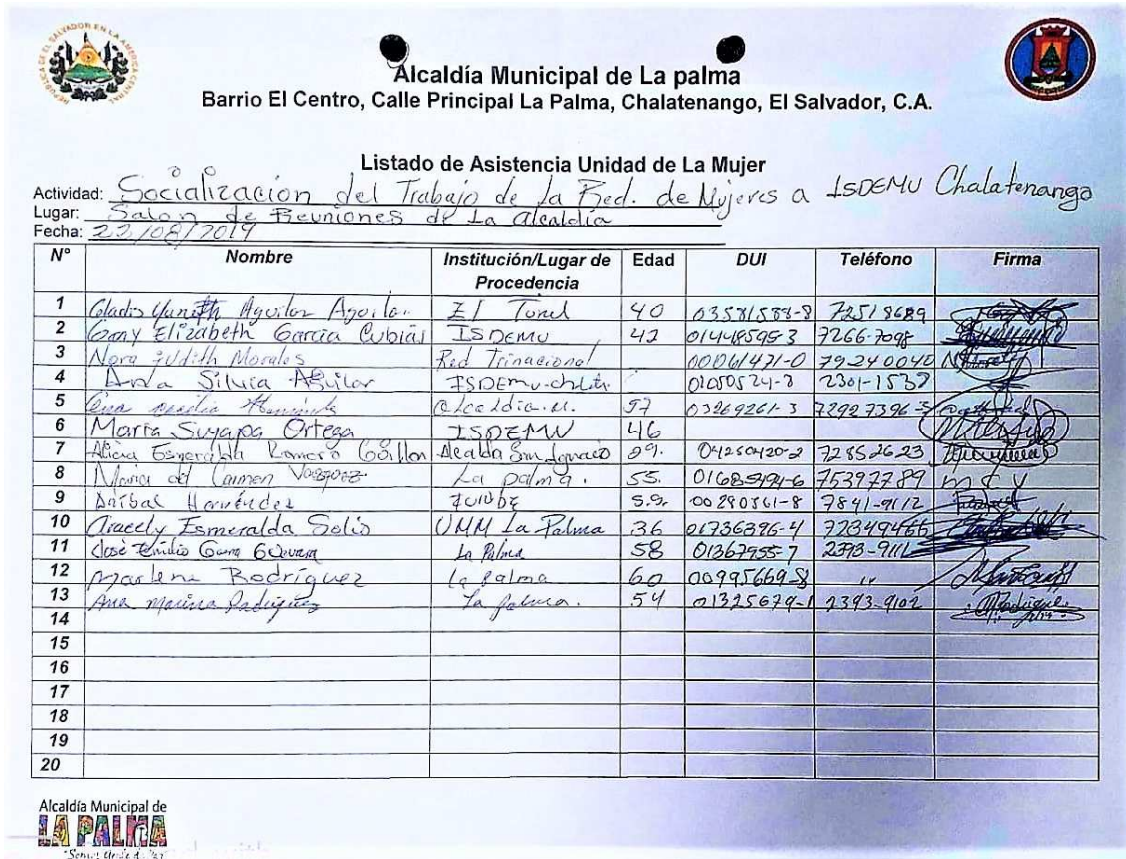 REPUBLICA DE EL SALVADOR EN LA AMERICA CENTRAL
Alcaldía Municipal de La palma
Barrio El Centro, Calle Principal La Palma, Chalatenango, El Salvador, C.A.
Listado de Asistencia Unidad de La Mujer
Actividad: Socializacion del Trabajo de La Red. de Mujeres a ISDEMU Chalatenango
Lugar: Salon de Reuniones de La alcaldia
Fecha: /08/2019
N° Nombre Institución/Lugar de Procedencia Edad DUI Teléfono Firma
1 Gladis Yunith Aguilar Aguilar El Tunel 40 72518689
2 Elizabeth Garcia Cubias ISDEMU 42 01448595-3 7266-7098
3 Nora Judith Morales Red Trinacional 00061471-0 79240040
4 Ana Silvia Aguilar ISDEMU- 2301-1539
5 alcaldia. M. 57 03269261-3 72927396
6 Maria Suyapa Ortega ISDEMU 46
7 Alicia Esmeralda Romero Alcaldia San Ignacio 29. 04250420-2 72852623
8 Maria del Carmen Vasquez La palma. 55. 75397789
9 Anibal Hernández 59. 00280561-8 7841-9112
10 Aracely Esmeralda Solis UMM La Palma 36 01736396-4
11 Jose Emilio La Palma 58 01367955-7
12 Marlene Rodríguez La Palma 60 00995669-8 "
13 Ana Marina Rodriguez La palma. 54 01325679-1 2393-9102
14
15
16
17
18
19
20
Alcaldía Municipal de
LA PALMA